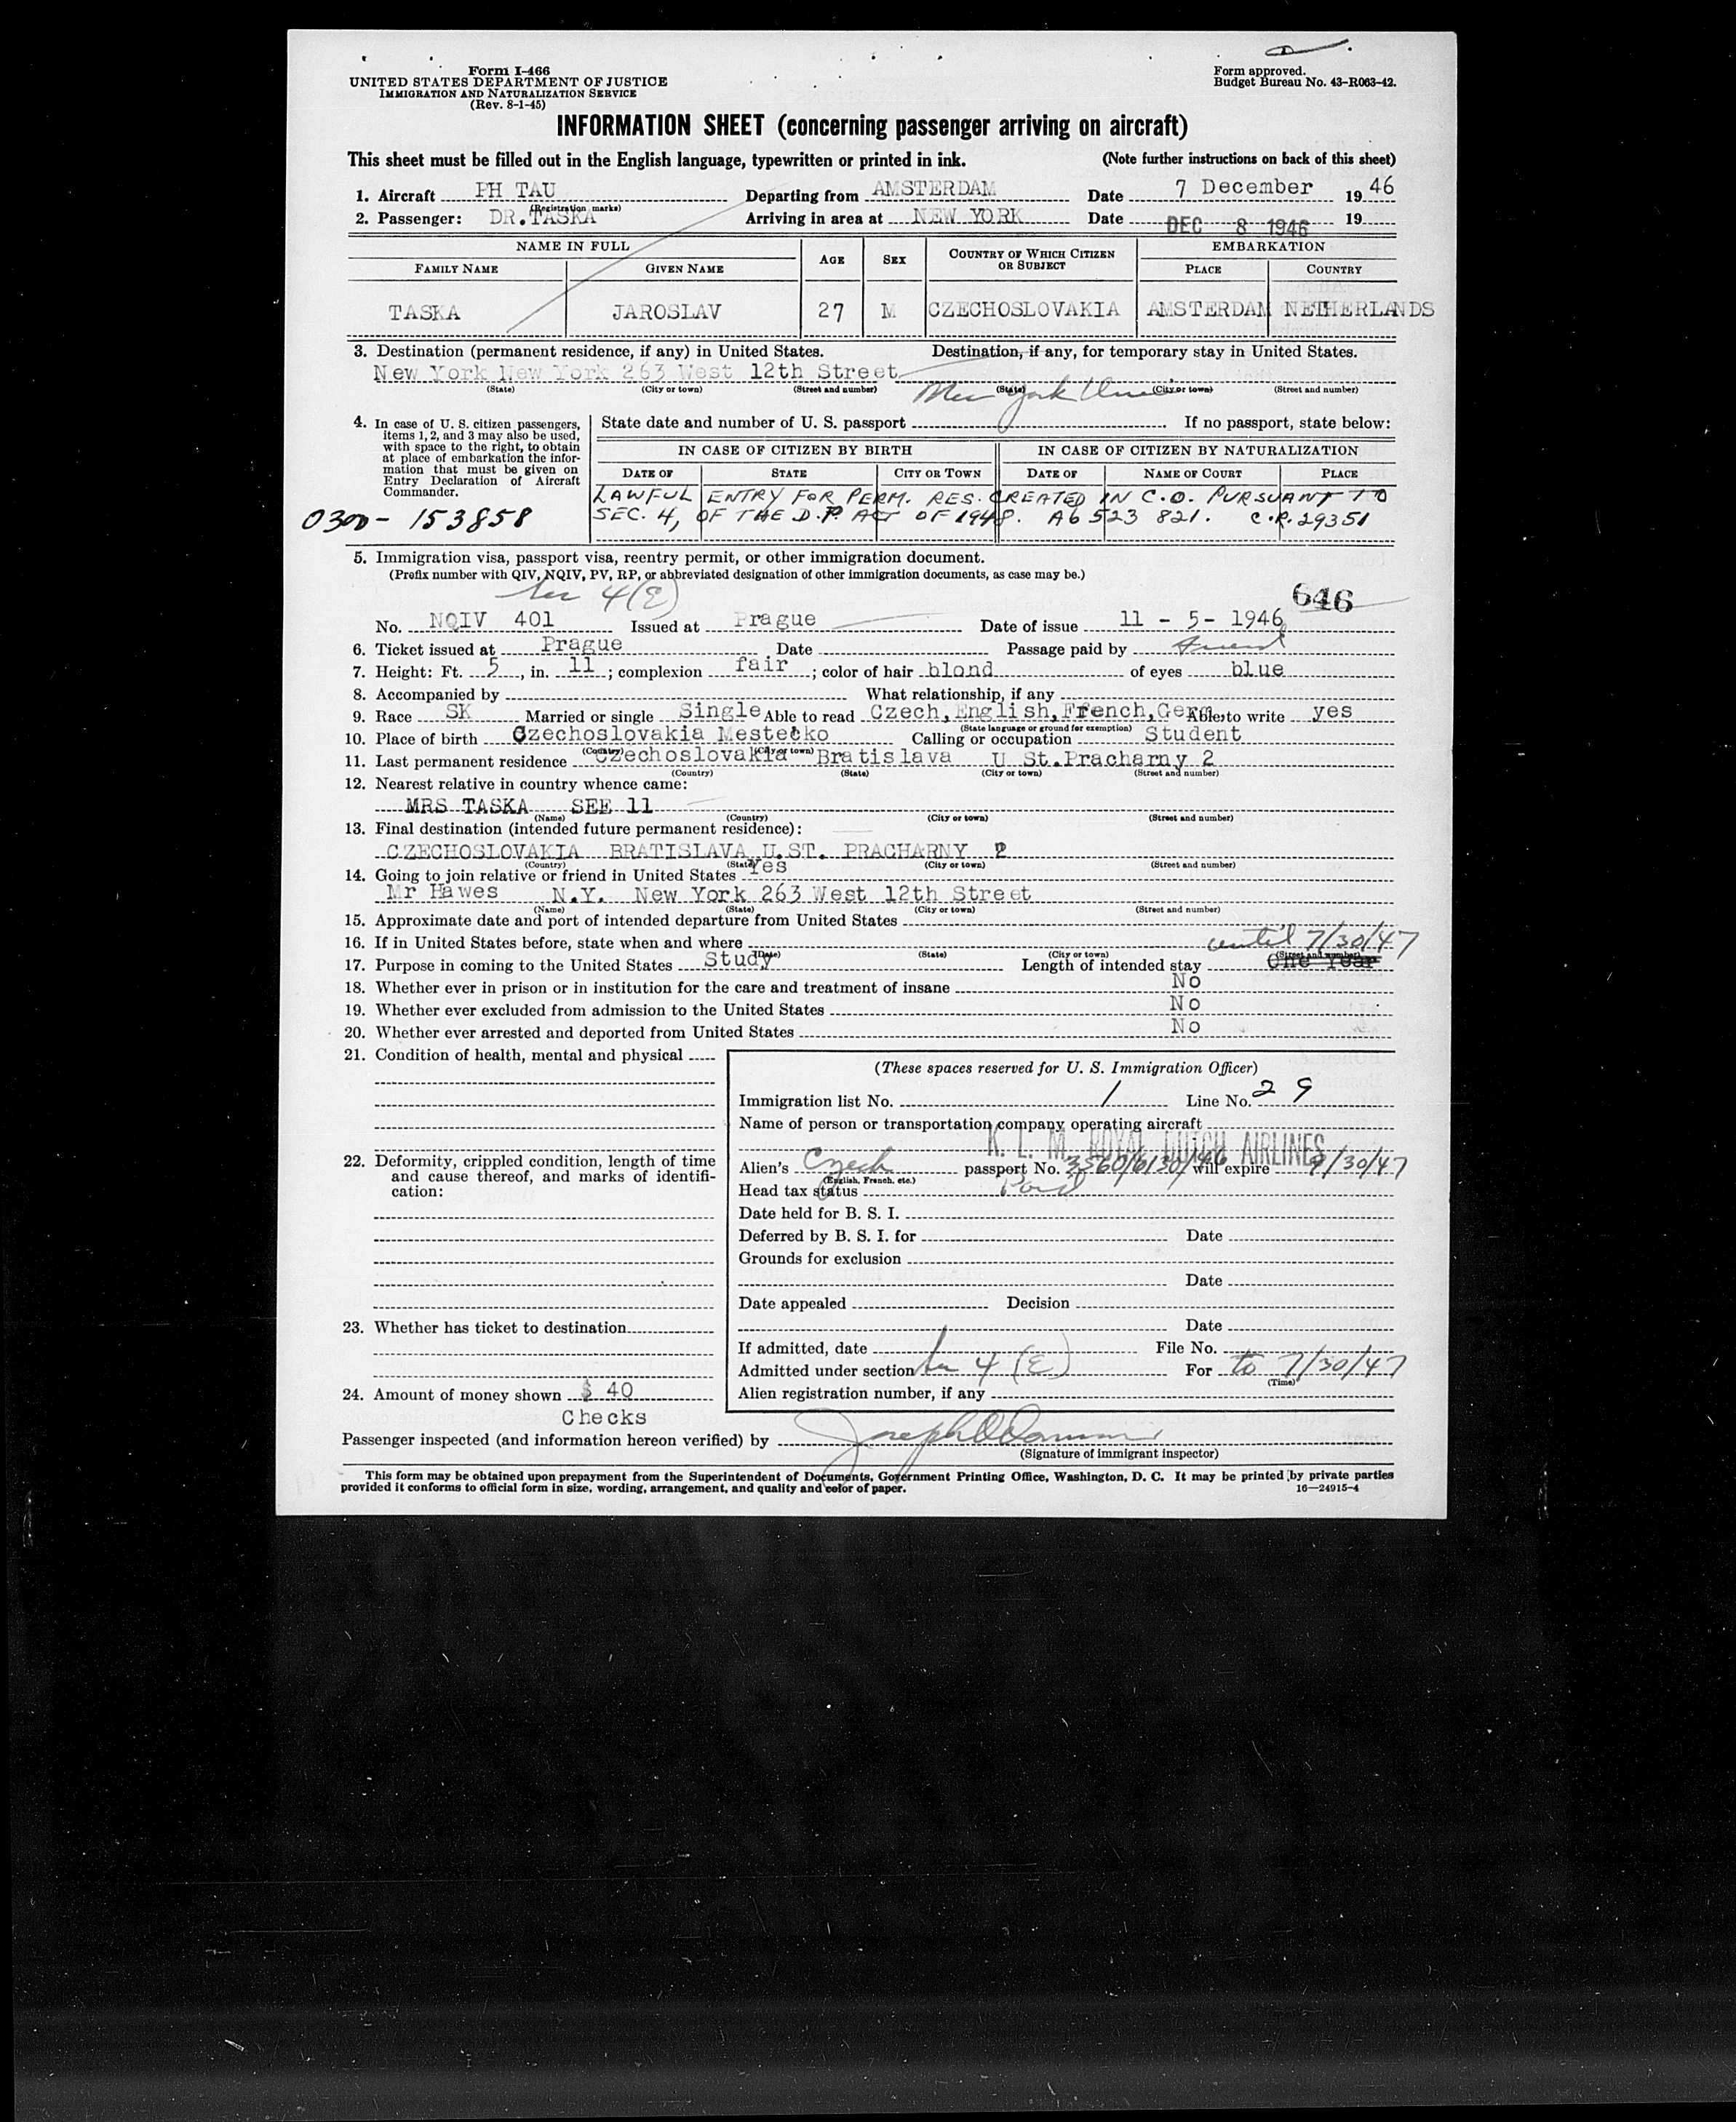 Form I-466
UNITED STATES DEPARTMENT OF JUSTICE
IMMIGRATION AND NATURALIZATION SERVICE
(Rev. 8-1-45)
Form approved.
Budget Bureau No. 43-R063-42.
INFORMATION SHEET (concerning passenger arriving on aircraft)
This sheet must be filled out in the English language, typewritten or printed in ink. (Note further instructions on back of this sheet)
1. Aircraft PH TAU Departing from AMSTERDAM Date 7 December 1946
(Registration marks)
2. Passenger: DR.TASKA Arriving in area at NEW YORK Date DEC 8 1946 19
NAME IN FULL AGE SEX COUNTRY OF WHICH CITIZEN OR SUBJECT EMBARKATION
FAMILY NAME GIVEN NAME PLACE COUNTRY
TASKA JAROSLAV 27 M CZECHOSLOVAKIA AMSTERDAM NETHERLANDS
3. Destination (permanent residence, if any) in United States. Destination, if any, for temporary stay in United States.
New York New York 263 West 12th Street
(State) (City or town) (Street and number) (State) (City or town) (Street and number)
New York Univ
4. In case of U. S. citizen passengers, items 1, 2, and 3 may also be used, with space to the right, to obtain at place of embarkation the information that must be given on Entry Declaration of Aircraft Commander.
State date and number of U. S. passport If no passport, state below:
IN CASE OF CITIZEN BY BIRTH IN CASE OF CITIZEN BY NATURALIZATION
DATE OF STATE CITY OR TOWN DATE OF NAME OF COURT PLACE
LAWFUL ENTRY FOR PERM. RES. CREATED IN C.O. PURSUANT TO
SEC. 4, OF THE D.P. ACT OF 1948. A6 523 821. C.R. 29351
0300-153858
5. Immigration visa, passport visa, reentry permit, or other immigration document.
(Prefix number with QIV, NQIV, PV, RP, or abbreviated designation of other immigration documents, as case may be.)
4(E)
646
No. NQIV 401 Issued at Prague Date of issue 11 - 5- 1946
6. Ticket issued at Prague Date Passage paid by Friend
7. Height: Ft. 5, in. 11; complexion fair; color of hair blond of eyes blue
8. Accompanied by What relationship, if any
9. Race SK Married or single Single Able to read Czech,English,French,Germ, Able to write yes
(State language or ground for exemption)
10. Place of birth Czechoslovakia Mestecko Calling or occupation Student
(Country) (City or town)
11. Last permanent residence Czechoslovakia Bratislava U St.Pracharny 2
(Country) (State) (City or town) (Street and number)
12. Nearest relative in country whence came:
MRS TASKA SEE 11
(Name) (Country) (City or town) (Street and number)
13. Final destination (intended future permanent residence):
CZECHOSLOVAKIA BRATISLAVA U.ST. PRACHARNY 2
(Country) (State) (City or town) (Street and number)
14. Going to join relative or friend in United States Yes
Mr Hawes N.Y. New York 263 West 12th Street
(Name) (State) (City or town) (Street and number)
15. Approximate date and port of intended departure from United States
16. If in United States before, state when and where
(Date) (State) (City or town) (Street and number)
until 7/30/47
17. Purpose in coming to the United States Study Length of intended stay One Year
18. Whether ever in prison or in institution for the care and treatment of insane No
19. Whether ever excluded from admission to the United States No
20. Whether ever arrested and deported from United States No
21. Condition of health, mental and physical
22. Deformity, crippled condition, length of time and cause thereof, and marks of identification:
23. Whether has ticket to destination
24. Amount of money shown $ 40
Checks
(These spaces reserved for U. S. Immigration Officer)
Immigration list No. 1 Line No. 29
Name of person or transportation company operating aircraft
K. L. M. ROYAL DUTCH AIRLINES
Alien's Czech passport No. 3560/6/30/46 will expire 9/30/47
(English, French, etc.)
Head tax status Paid
Date held for B. S. I.
Deferred by B. S. I. for Date
Grounds for exclusion
Date
Date appealed Decision
Date
If admitted, date File No.
Admitted under section 4 (E) For to 7/30/47
(Time)
Alien registration number, if any
Passenger inspected (and information hereon verified) by
(Signature of immigrant inspector)
This form may be obtained upon prepayment from the Superintendent of Documents, Government Printing Office, Washington, D. C. It may be printed by private parties
provided it conforms to official form in size, wording, arrangement, and quality and color of paper. 16—24915-4